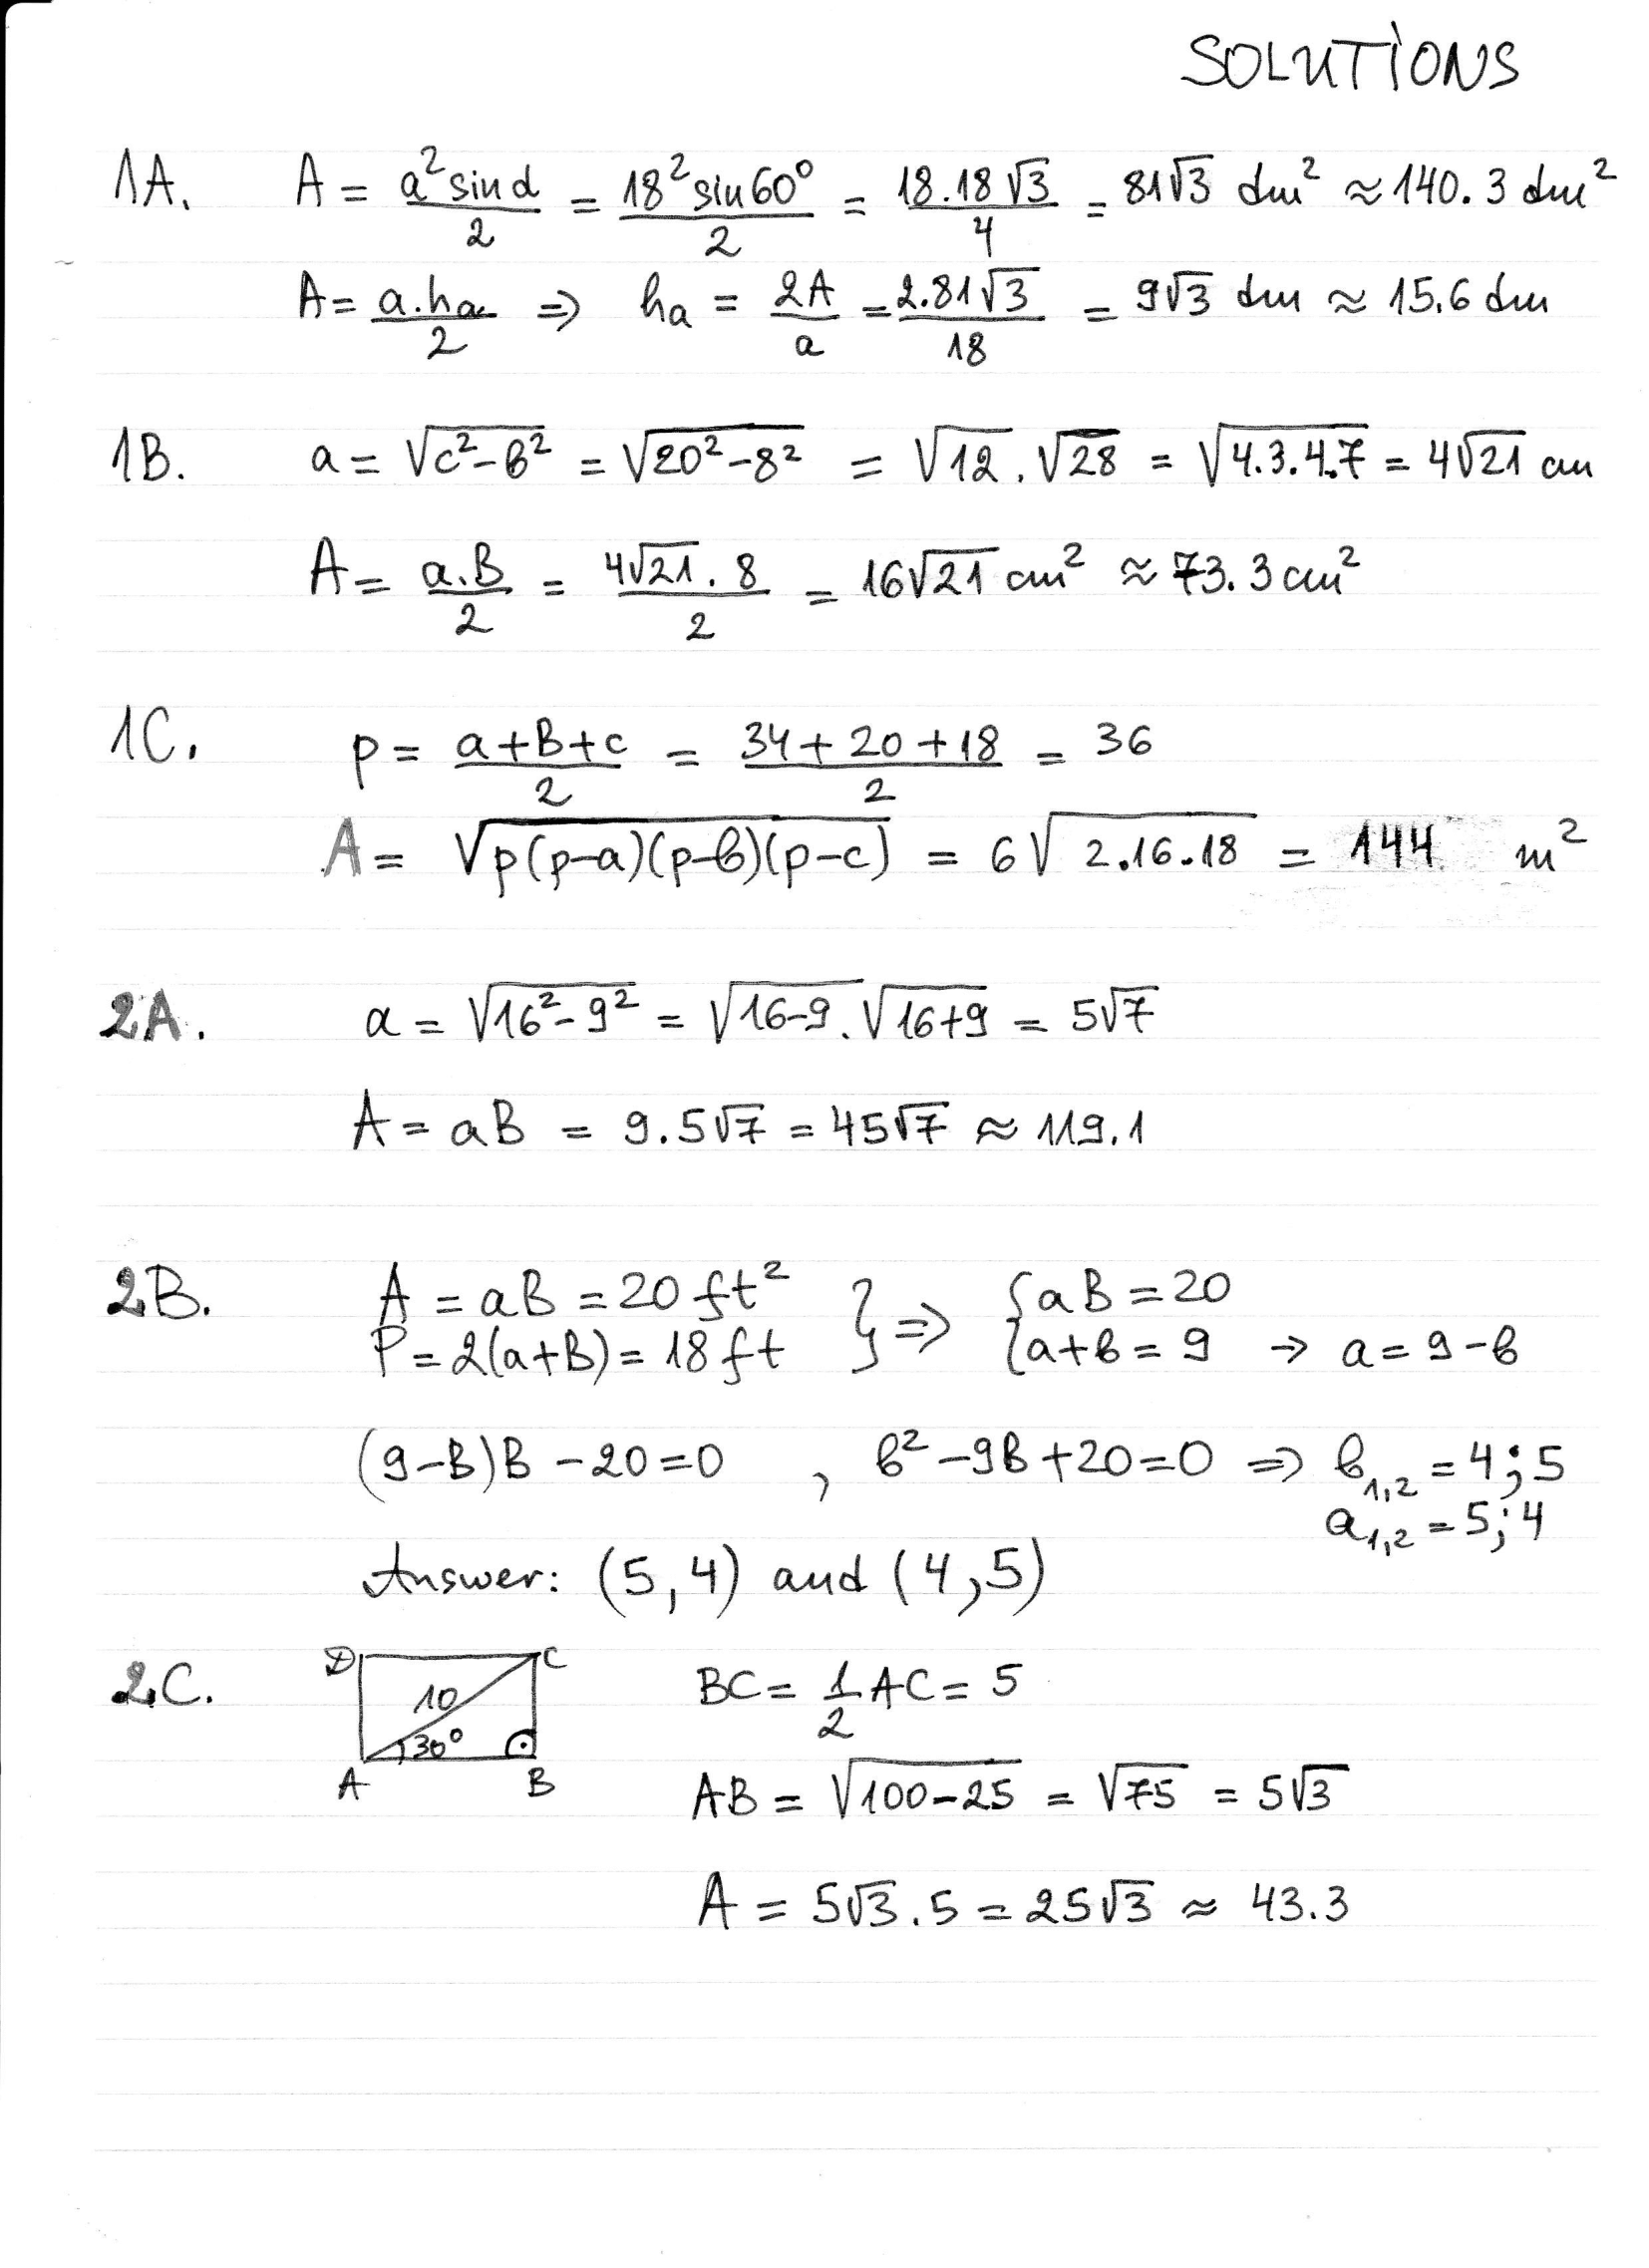 SOLUTIONS
1A. A = a² sin α / 2 = 18² sin 60° / 2 = 18.18√3 / 4 = 81√3 dm² ≈ 140.3 dm²
A = a.ha / 2 ⇒ ha = 2A / a = 2.81√3 / 18 = 9√3 dm ≈ 15.6 dm
1B. a = √(c²-b²) = √(20²-8²) = √12 . √28 = √(4.3.4.7) = 4√21 cm
A = a.b / 2 = 4√21 . 8 / 2 = 16√21 cm² ≈ 73.3 cm²
1C. p = a+b+c / 2 = 34+20+18 / 2 = 36
A = √(p(p-a)(p-b)(p-c)) = 6√(2.16.18) = 144 m²
2A. a = √(16²-9²) = √(16-9) . √(16+9) = 5√7
A = ab = 9.5√7 = 45√7 ≈ 119.1
2B. A = ab = 20 ft² } ⇒ { ab = 20
P = 2(a+b) = 18 ft } ⇒ { a+b = 9 → a = 9-b
(9-b)b - 20 = 0 , b² - 9b + 20 = 0 ⇒ b1,2 = 4; 5
a1,2 = 5; 4
Answer: (5,4) and (4,5)
2C. D C BC = 1/2 AC = 5
10
30°
A B AB = √(100-25) = √75 = 5√3
A = 5√3 . 5 = 25√3 ≈ 43.3